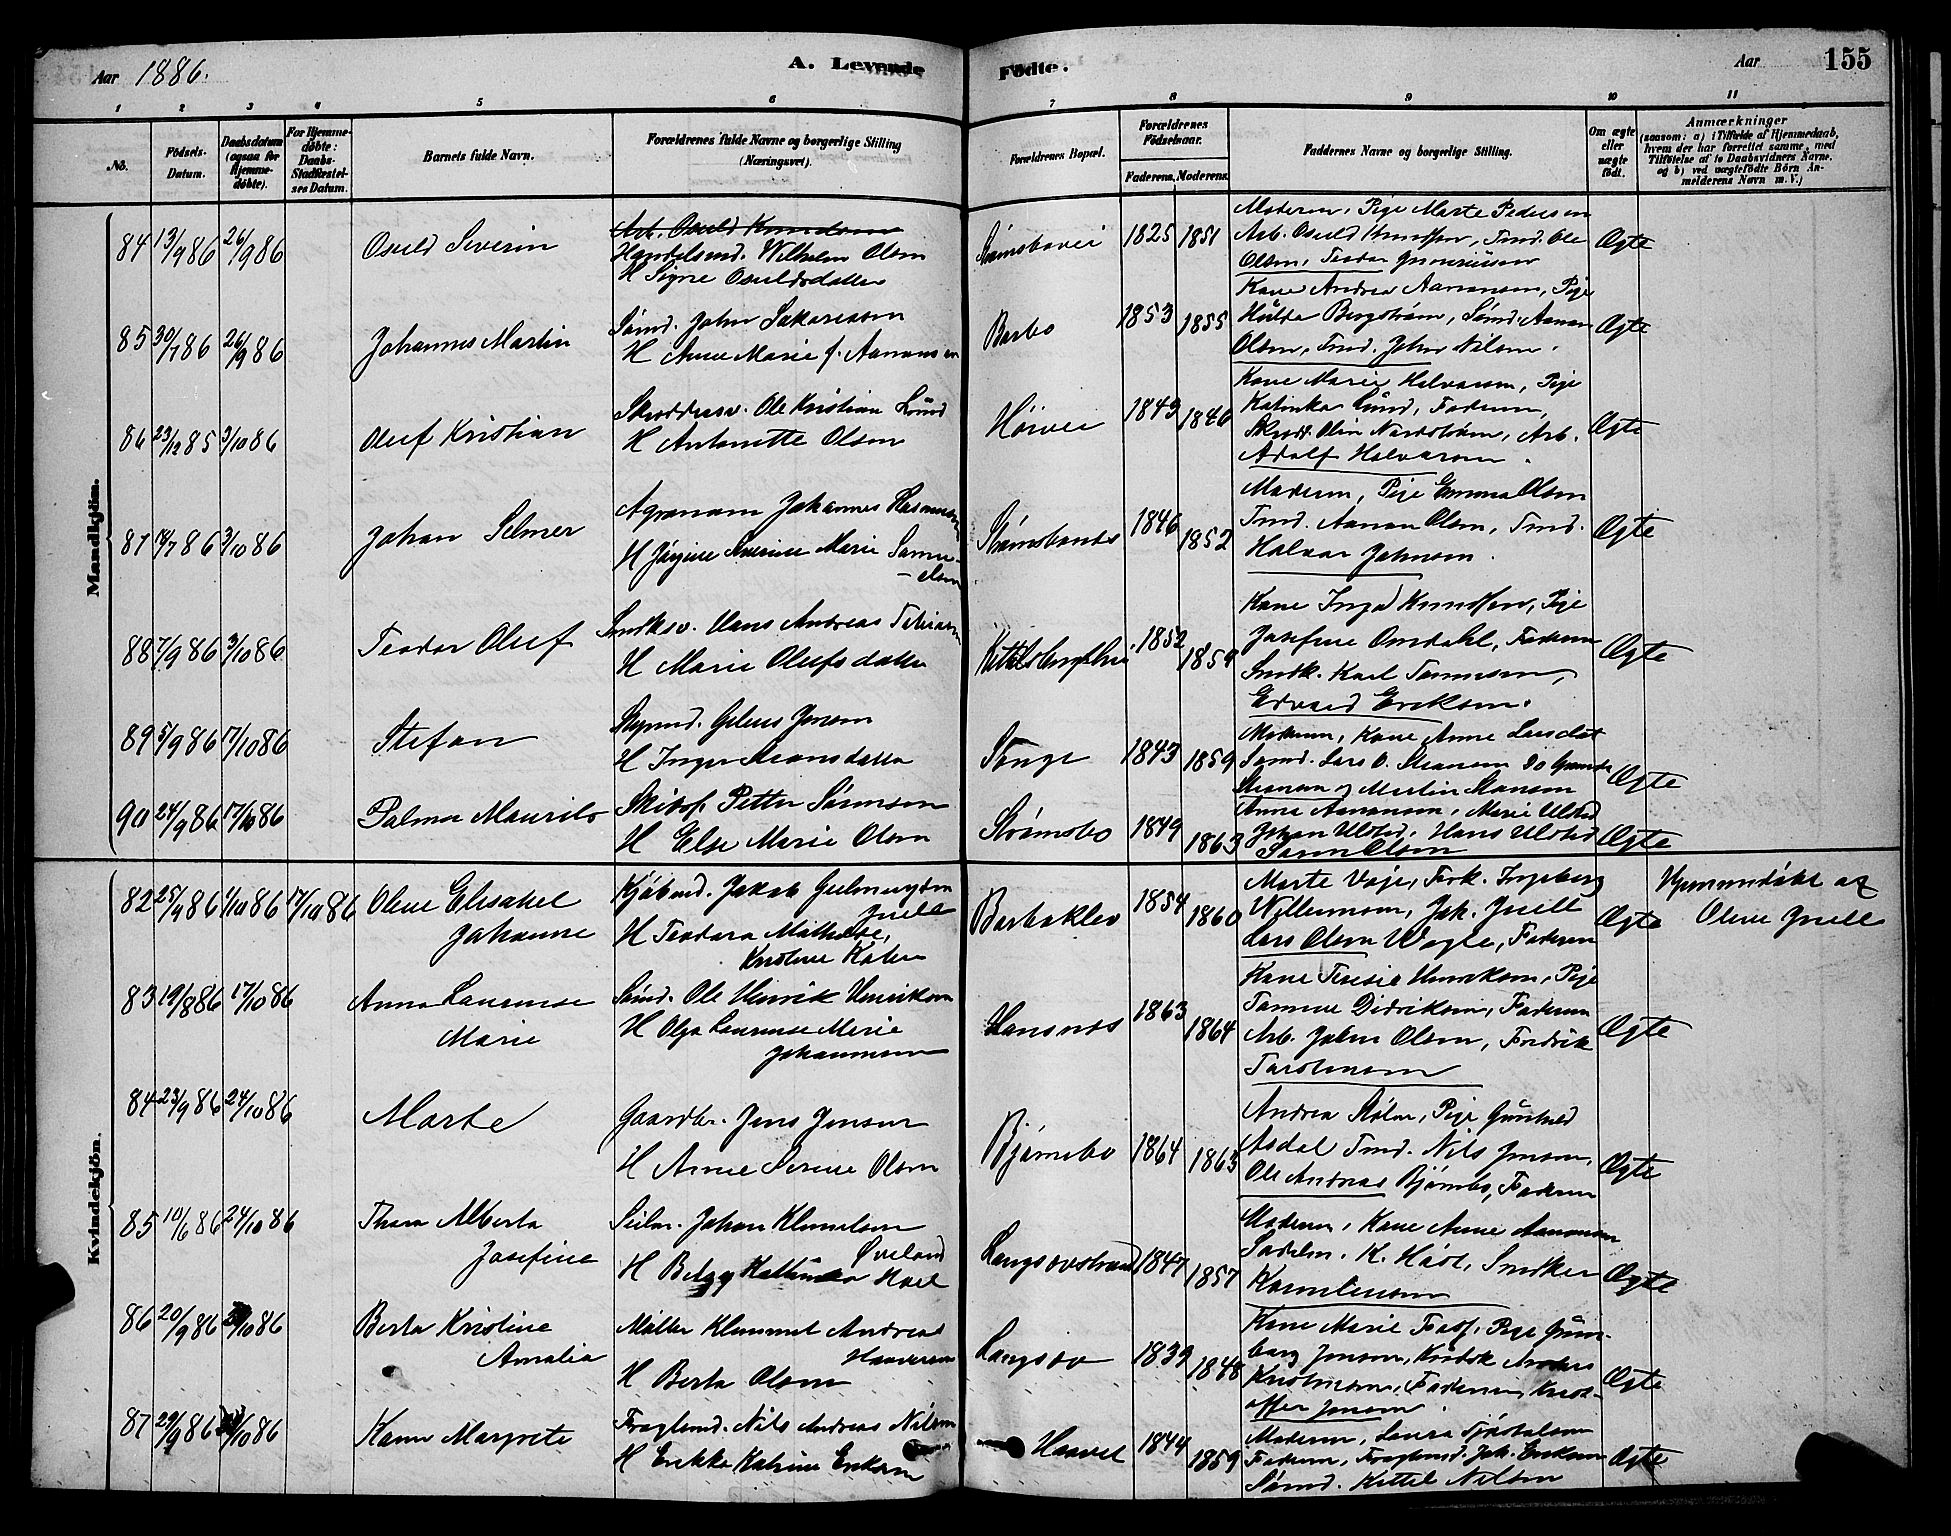 Aar 1886.
A. Levende
Fødte.
Aar
155
1
2
3
4
5
6
7
8
9
10
11
No.
Fødsels-
Datum.
Daabsdatum
(ogsaa for
Hjemme-
døbte).
For Hjemme-
døbte:
Daabs-
Stadfæstel-
ses Datum.
Barnets fulde Navn.
Forældrenes fulde Navne og borgerlige Stilling
(Næringsvei).
Forældrenes Bopæl.
Forældrenes
Fødselsaar.
Faderens. Moderens.
Faddernes Navne og borgerlige Stilling.
Om ægte
eller
uægte
født.
Anmærkninger
(saasom: a) i Tilfælde af Hjemmedaab,
hvem der har forrettet samme, med
Tilføielse af to Daabsvidners Navne,
og b) ved uægtefødte Børn An-
melderens Navn m. V.)
Mandkjøn.
84 13/9 86 26/9 86
Osuld Severin
Arb. Osuld Knudsen
Handelsmd. Wilhelm Olsen
H Signe Osuldsdatter
Strømsbovei
1825 1851
Moderen, Pige Marte Pedersen
Arb. Osuld Knudsen, Tmd. Ole
Olsen, Teodor
Ægte
85 30/7 86 26/9 86
Johannes Martin
Sømd. John Sakariasen
H Anne Marie f. Aanonsen
Barbo
1853 1855
Kone Andrea Aanonsen, Pige
Hulda Bergstrøm, Sømd. Aanon
Olsen, Tmd. John Nilsen.
Ægte
86 23/12 85 3/10 86
Oluf Kristian
Skræddersv. Ole Kristian Lund
H Antonette Olsen
Høivei
1843 1846
Kone Marie Halvorsen, Pige
Katinka Lund, Faderen,
Skræd. Olin Nordstrøm, Arb.
Adolf Halvorsen.
Ægte
87 86 3/10 86
Johan Selmer
Agronom Johannes Rasmussen
H Jørgine Severine Marie Samu-
-elsen
Strømsbunes
1846 1852
Moderen, Pige Emma Olsen
Tmd. Aanon Olsen, Tmd.
Halvor Johnsen.
Ægte
88 7/9 86 3/10 86
Teodor Oluf
Snedksv. Hans Andreas
H Marie Olufsdatter
1852 1859
Kone Inga Knudsen, Pige
Josefine Omdahl, Faderen
Snedk. Karl Tønnesen,
Edvard Eriksen.
Ægte
89 5/9 86 17/10 86
Stefan
Jensen
H Inger Steansdatter
Songe
1843 1859
Moderen, Kone Anne Larsdat
Sømd. Lars O. Steansen
Steansen og Martin Stansen
Ægte
90 24/9 86 17/10 86
Palmer Maurits
Skibsf. Petter Sørensen
H Else Marie Olsen
Strømsbo
1849 1863
Anne Aanonsen, Marie Ulsted
Johan Ulsted, Hans Ulsted
Søren Olsen
Ægte
Kvindekjøn.
82 25/9 86 1/10 86 17/10 86
Oline Elisabet
Johanne
Kjøbmd. Jakob Gulmundsen
Juell
H Teodora Mathilde,
Kristine Kolen
Barbuklev
1854 1860
Marte Voje, Frk. Ingeborg
Willumsen, Jak. Juell
Lars Olsen Wogle, Faderen
Ægte
Hjemmedøbt af
Oline Juell
83 19/8 86 17/10 86
Anna Laurense
Marie
Sømd. Ole Henrik Henriksen
H Olga Laurense Merie
Johannesen
Hansnes
1863 1864
Kone Teresie Henriksen, Pige
Tomine Didriksen, Faderen
Arb. John Olsen, Fredrik
Torstensen
Ægte
84 23/9 86 24/10 86
Marte
Gaardbr. Jens Jensen
H Anne Serine Olsen
Bjørnebo
1864 1863
Andrea Stølen, Pige Gunhild
Asdal Tmd. Nils Jensen,
Ole Andreas Bjørnebo, Faderen
Ægte
85 10/6 86 24/10 86
Thora Alberta
Josefine
Seilm. Johan Klemetsen
Øveland
H Betzy Kathinka Hoel
Langsøvstrand
1847 1857
Moderen, Kone Anne Aanonsen
Sadelm. K. Høst, Snedker
Kornelensen
Ægte
86 20/9 86 /10 86
Berta Kristine
Amalia
Møller Klemmet Andreas
Haaversen
H Berta Olsen
Langsøv
1839 1848
Kone Marie Foss, Pige Guun-
borg Jensen, Anders
Kristensen, Faderen, Krist-
offer Jensen.
Ægte
87 29/9 86 /10 86
Karen Margrete
Fraglmd. Nils Andreas Nilsen
H Erikka Katrine Eriksen
Haavet
1844 1859
Moderen, Laura Tjøstolsen
Faderen, Fraglmd. Joh. Eriksen
Sømd. Kittel Nilsen
Ægte